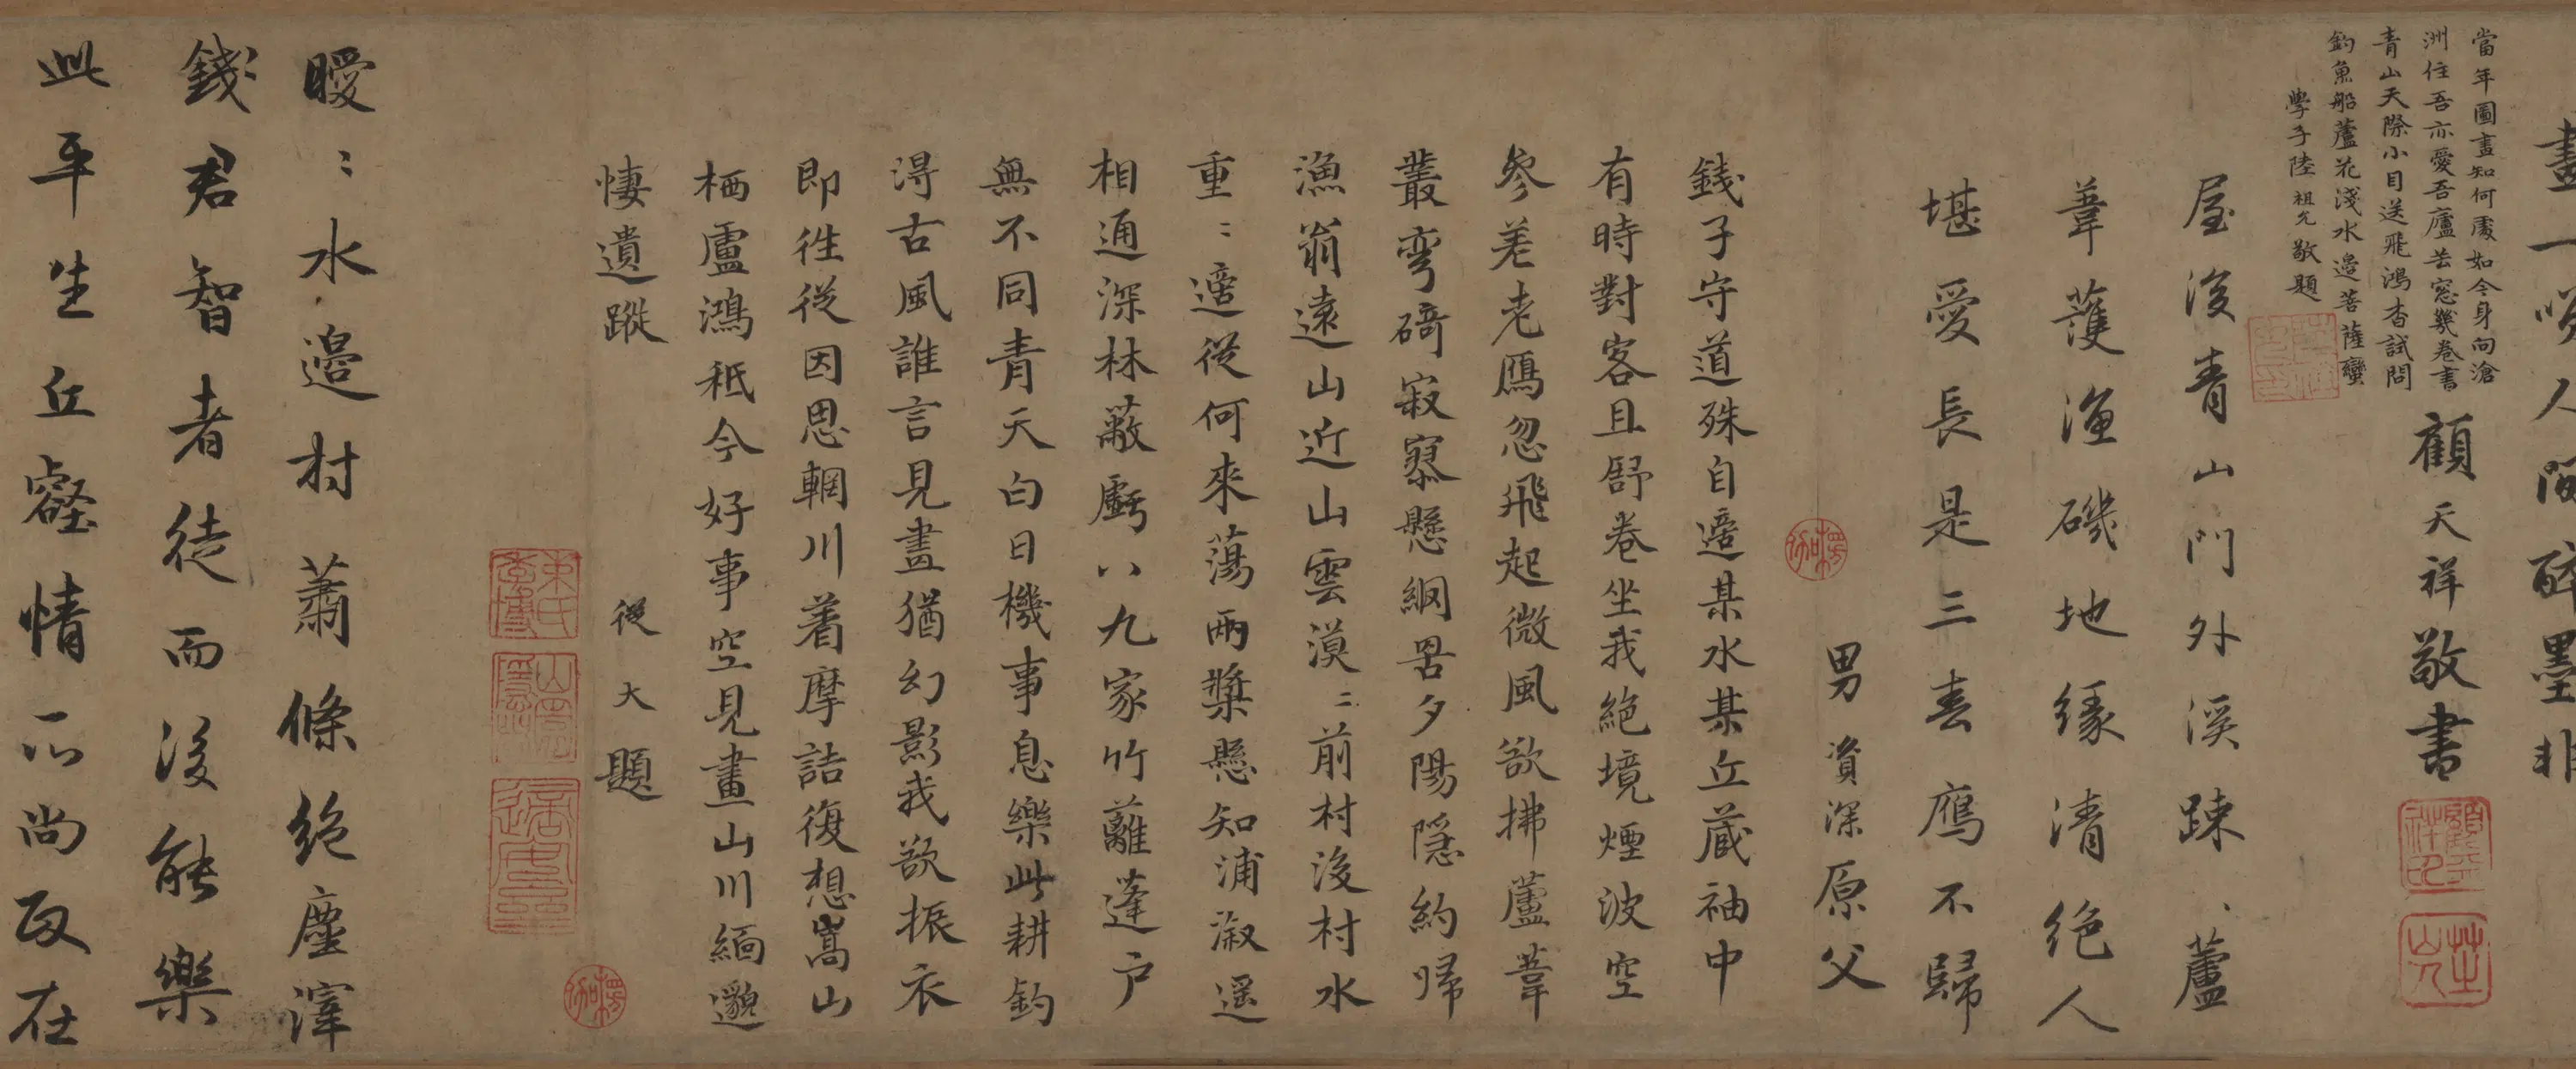 畫一
人間醉墨非
顧天祥敬書
當年圖畫知何處如今身向滄
洲住吾亦愛吾廬芸窓幾卷書
青山天際小目送飛鴻杳試問
釣魚船蘆花淺水邊菩薩蠻
學子陸祖允敬題
屋後青山門外溪踈、蘆
葦護漁磯地緣清絕人
堪愛長是三春鴈不歸
男資深原父
錢子守道殊自適某水某丘蔵袖中
有時對客且舒卷坐我絕境煙波空
參差老鴈忽飛起微風欲拂蘆葦
叢彎碕寂寞懸網罟夕陽隠約歸
漁翁遠山近山雲漠〻前村後村水
重〻適從何來蕩兩槳懸知浦溆遥
相通深林蔽虧八九家竹蘺蓬户
無不同青天白日機事息樂此耕釣
得古風誰言見畫猶幻影我欲振衣
即徃從因思輞川着摩詰復想嵩山
栖盧鴻秖今好事空見畫山川緬邈
悽遺蹤
從大題
曖〻水邊村蕭條絶塵滓
錢君智者徒而後能樂
此平生丘壑情所尚政在